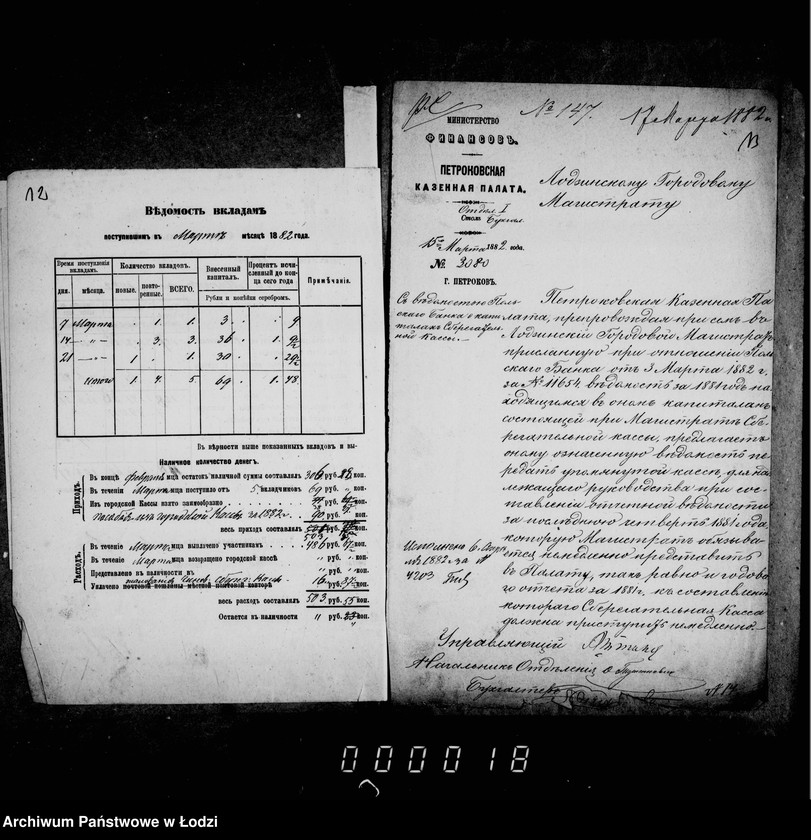 12
Вѣдомость вкладамъ
поступившимъ въ Мартѣ мѣсяцѣ 1882 года.
Время поступленія вкладамъ.
Количество вкладовъ.
Внесенный капиталъ.
Процентъ исчисленный до конца сего года
Примѣчанія.
дня. мѣсяца. новые. повторенные. ВСЕГО.
Рубли и копѣйки серебромъ.
7 Марта . 1. 1. 3 . . 9
14 — „ — . 3. 3. 36 . 1. 9½
21 — „ — 1 . 1. 30 . . 29½
Итого 1. 4. 5 69 . 1. 48
Въ вѣрности выше показанныхъ вкладовъ и вы-
Наличное количество денегъ.
Приходъ.
Въ концѣ февраля мца остатокъ наличной суммы составлялъ 306 руб. 88 коп.
Въ теченіи Марта мца поступило отъ 5 вкладчиковъ 69 руб. „ коп.
Изъ городской Кассы взято заимообразно руб. коп.
въ городской Кассѣ за 1882 г. 90 руб. коп.
весь приходъ составлялъ 503 руб. 55 коп.
Расходъ.
Въ теченіи Марта мца выплачено участникамъ 486 руб. коп.
Въ теченіи Марта мца возвращено городской кассѣ „ руб. „ коп.
Представлено въ наличности въ „ руб. „ коп.
Уплачено почтовой пошлины 16 руб. 37 коп.
весь расходъ составлялъ 503 руб. 55 коп.
Остается въ наличности „ руб. коп.
№ 147. 17 Марта 1882 г.
13
МИНИСТЕРСТВО
ФИНАНСОВЪ.
ПЕТРОКОВСКАЯ
КАЗЕННАЯ ПАЛАТА.
Отдѣл. I
Столъ Бухгал.
15 Марта 1882 года.
№ 3080
Г. ПЕТРОКОВЪ.
Лодзинскому Городовому
Магистрату
Съ вѣдомостью Поль
скаго Банка о капи
талахъ Сберегатель
ной Кассы.—
Петроковская Казенная Па
лата, препровождая при семъ въ
Лодзинскій Городовой Магистратъ
присланную при отношеніи Поль
скаго Банка отъ 3 Марта 1882 г.
за № 11654 вѣдомость за 1881 годъ на
ходящимся въ ономъ капиталамъ
состоящей при Магистратѣ Сбе
регательной кассы, предлагаетъ
оному означенную вѣдомость пе
редать упомянутой кассѣ для над
лежащаго руководства при сос
тавленіи отчетной вѣдомости
за послѣднюю четверть 1881 года
которую Магистратъ обязыва
ется немедленно представить
въ Палату, такъ равно и годово
го отчета за 1881 г. къ составленію
котораго Сберегательная Касса
должна приступить немедленно.—
Исполнено 6 Апр
1882 за №
4203
Управляющій
Начальникъ Отдѣленія
Бухгалтеръ
000018
Archiwum Państwowe w Łodzi